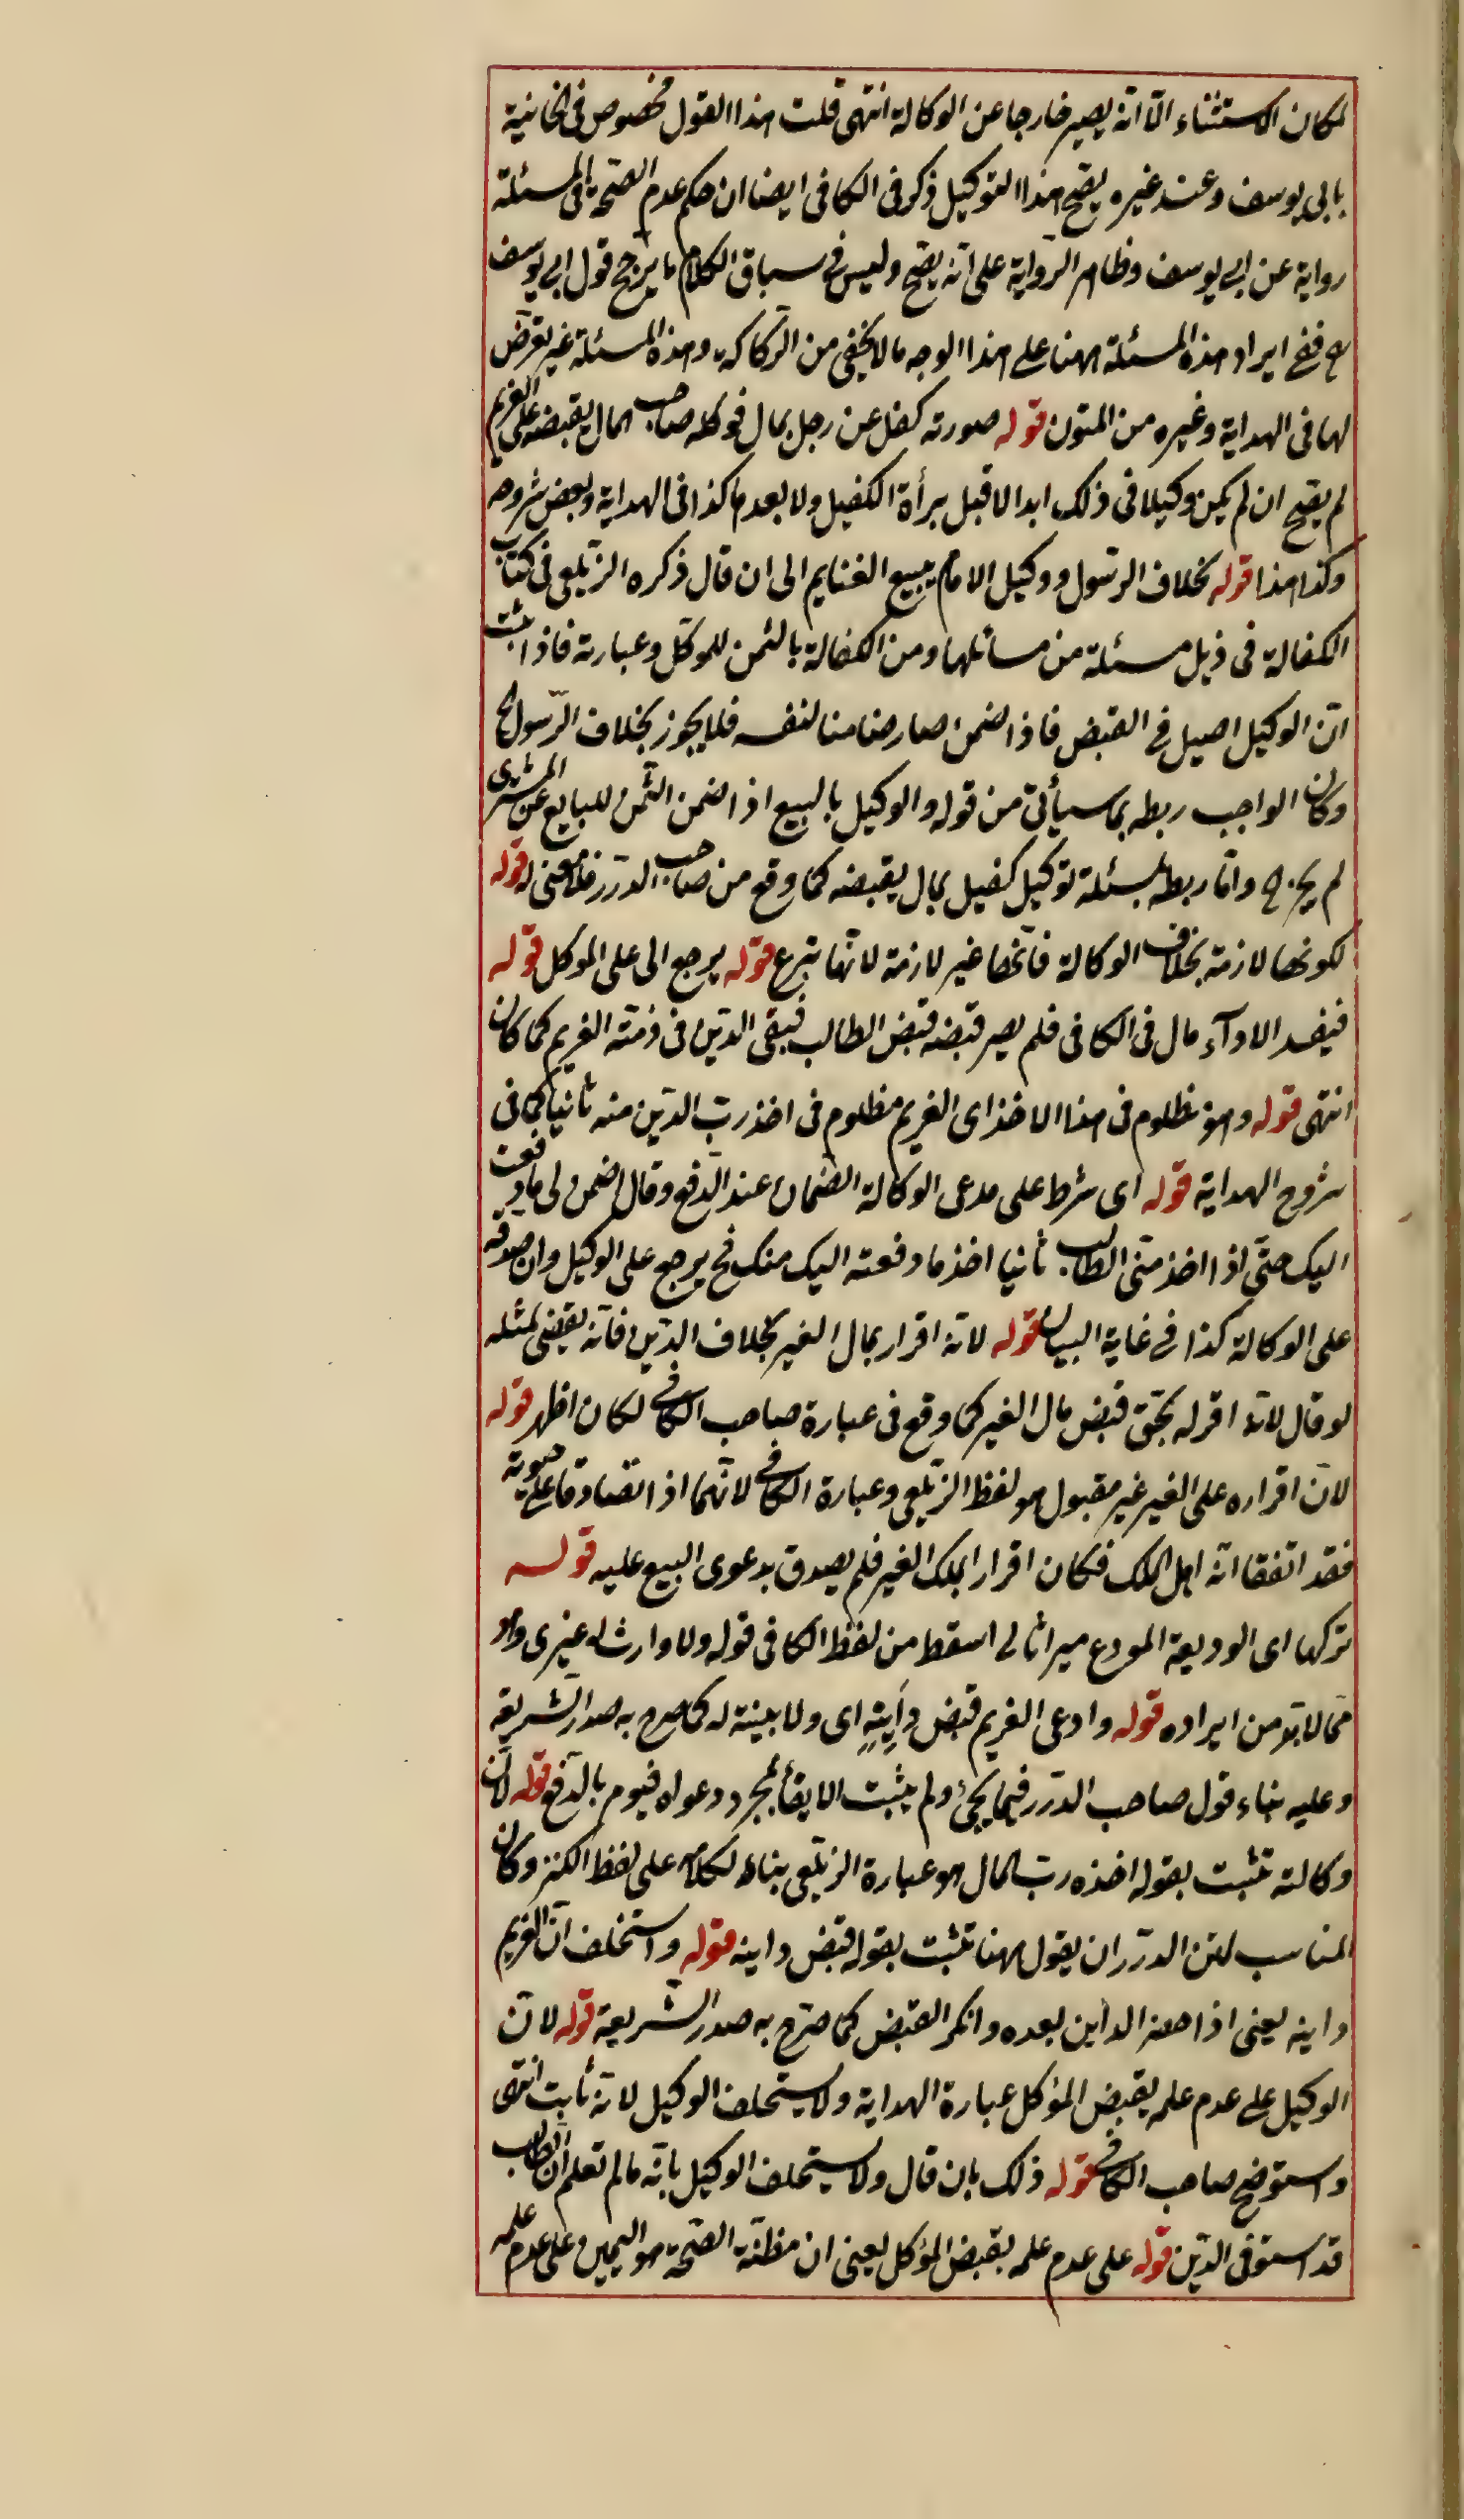 لمكان الاستثناء الّا انّه يصير خارجا عن الوكالة انتهى قلت هذا القول مخصوص فى الخانية
بابى يوسف وعند غيره يصّح هذا التوكيل ذكر فى الكافى ايضا ان حكم عدم الصّحة فى المسئلة
رواية عن ابى يوسف وظاهر الرّواية على انّه يصّح وليس فى سباق الكلام ما يرجح قول ابى يوسف
ح ففى ايراد هذه المسئلة ههنا على هذا الوجه ما لا يخفى من الرّكاكه وهذه المسئلة غير تعرّض
لها فى الهداية وغيره من المتون قوله صورته كفل عن رجل بمال فوكله صاحب المال يقبضه على الغريم
لم يصّح ان لم يكن وكيلا فى ذلك ابدا لا قبل برأة الكفيل ولا بعدها كذا فى الهداية وبعض شروحه
وكذا هذا قوله بخلاف الرّسول ووكيل الامام ببيع الغنايم الى ان قال ذكره الزّيلعى فى كتاب
الكفالة فى ذيل مسئلة من مسائلها ومن الكفالة بالثمن للموكّل وعبارته فاذا ثبت
انّ الوكيل اصيل فى القبض فاذا ضمن صار ضامنا لنفسه فلا يجوز بخلاف الرّسول ح
وكان الواجب ربطه بما سيأتى من قوله والوكيل بالبيع اذا ضمن الثّمن للبايع عن المشترى
لم يجز ح وامّا ربطه بمسئلة توكيل كفيل بمال يقبضه كما وقع من صاحب الدّرر فلا معنى له قوله
لكونها لازمة بخلاف الوكالة فانّها غير لازمة لانّها تبرع قوله يرجع الى على الموكل قوله
فيفسد الاداء مال فى الكافى فلم يصر قبضه قبض الطالب فبقى الدّين فى ذمّة الغريم كما كان
انتهى قوله وهو مظلوم فى هذا الاخذ اى الغريم مظلوم فى اخذ ربّ الدّين منه ثانيا كما فى
شروح الهداية قوله اى شرط على مدعى الوكالة الضّمان عند الدّفع وقال اضمن لى ما دفعت
اليك حتّى اذا اخذ منّى الطالب ثانيا اخذ ما دفعته اليك منك فح يرجع على الوكيل وان صدقه
على الوكالة كذا فى غاية البيان قوله لانّه اقرار بمال الغير بخلاف الدّين فانّه يقضى بمثله
لو قال لانّه اقرله بحّق قبض مال الغير كما وقع فى عبارة صاحب الكافى لكان اظهر قوله
لانّ اقراره على الغير غير مقبول هو لفظ الزّيلعى وعبارة الكافى لانّهما اذا تصادقا على حيوته
فقد اتفقا انّه اهل الملك فكان اقرارا بملك الغير فلم يصدق بدعوى البيع عليه قوله
تركها اى الوديعة المودع ميراثا لى اسقط من لفظ الكافى قوله ولا وارث له غيرى وهو
ممّا لا بدّ من ايراده قوله وادعى الغريم قبض داينه اى ولا بينة له كما صرح به صدر الشّريعة
وعليه بناء قول صاحب الدّرر فيما يجئ ولم يثبت الايفاء بمجرد دعواه فيوم بالدّفع قوله لانّ
وكالته تثبت بقوله اخذه ربّ المال هو عبارة الزّيلعى بناء لكلامه على لفظ الكنز وكان
المناسب لمتن الدّرر ان يقول ههنا تثبت بقوله قبض داينه قوله واستحلف انّ الغريم
داينه يعنى اذا حضر الداين بعده وانكر القبض كما صّرح به صدر الشّريعة قوله لانّ
الوكيل على عدم علمه بقبض المؤكل عبارة الهداية ولا يستحلف الوكيل لانّه نائب انتهى
واستوضح صاحب الكافى قوله ذلك بان قال ولا يستحلف الوكيل بانّه ما لم تعلم انّ الطالب
قد استوفى الدّين قوله على عدم علمه بقبض المؤكل يعنى ان مظنّة الصّحة هو اليمين على عدم علمه